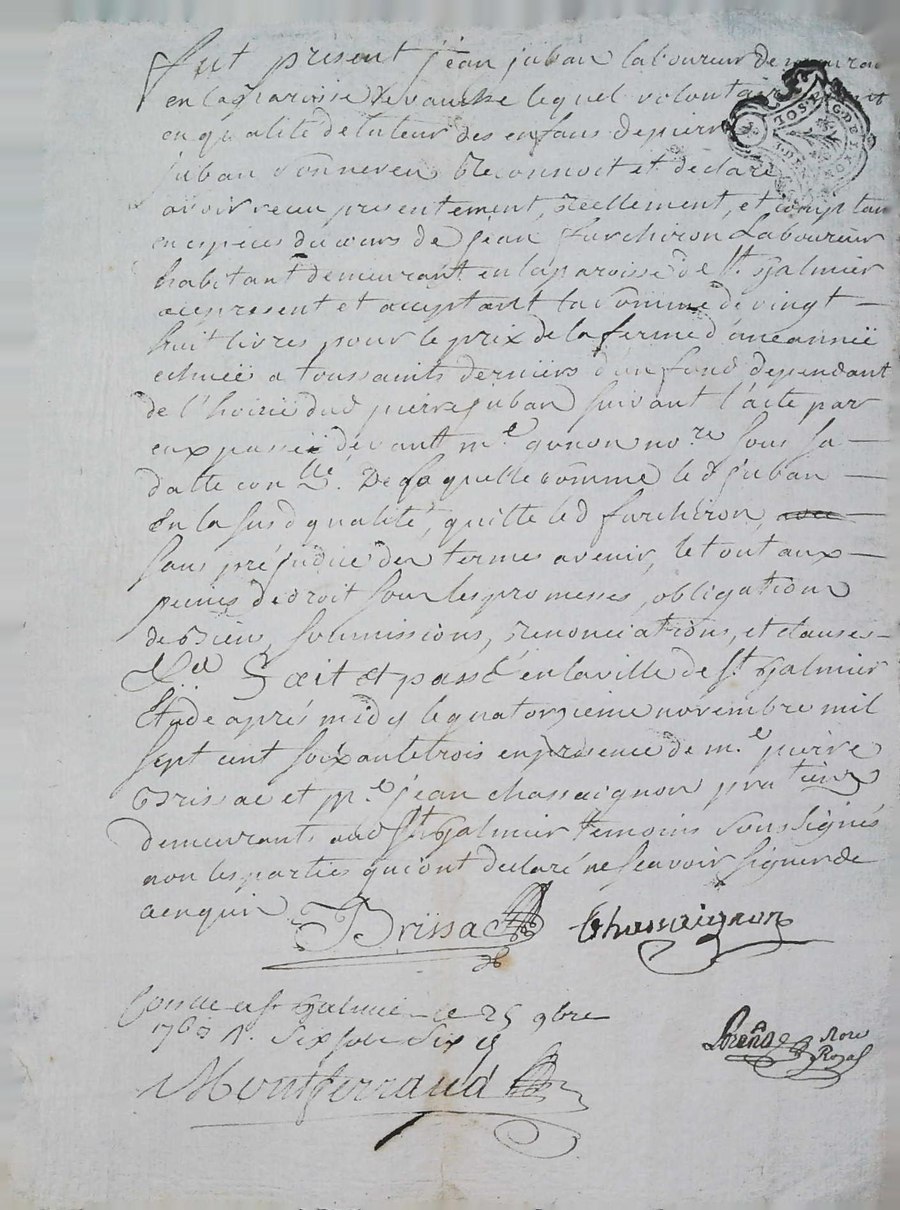 fut présent jean juban laboureur demeurant
en la paroisse de vauche lequel volontairement
en qualité de tuteur des enfans de pierre
juban a reconnoit et declaré
avoir receu presentement, reellement, et comptan
en espèces du cours de jean furchiron Laboureur
habitant demeurant en la paroisse de St. Galmier
acy present et acceptant la somme de vingt —
huit livres pour le prix de la ferme d'une année
echuée a toussaints derniers d'un fond dependant
de l'hoirie dud pierre juban suivant l'acte par
eux passée devant me. gonon nore sous sa —
datte conlle. De laquelle somme led juban —
En la susd qualité, quitte led furchiron, avec —
sans préjudice des termes avenir, le tout aux —
peines de droit sous les promesses, obligations
de biens, soumissions, renonciations, et clauses —
fait et passé en la ville de St. Galmier
Etude après midy le quatorzieme novembre mil
sept cent soixante trois en présence de me. pierre
Brissac et me. jean chassaignon praticiens
demeurants aud St Galmier temoins soussignés
non les parties qui ont declaré ne scavoir signer de
ce enquis
Brissac Chassaignon
Conlle a St Galmier le 25 9bre
1763 R. Six sols Six d
Montferrand
nore
Royal